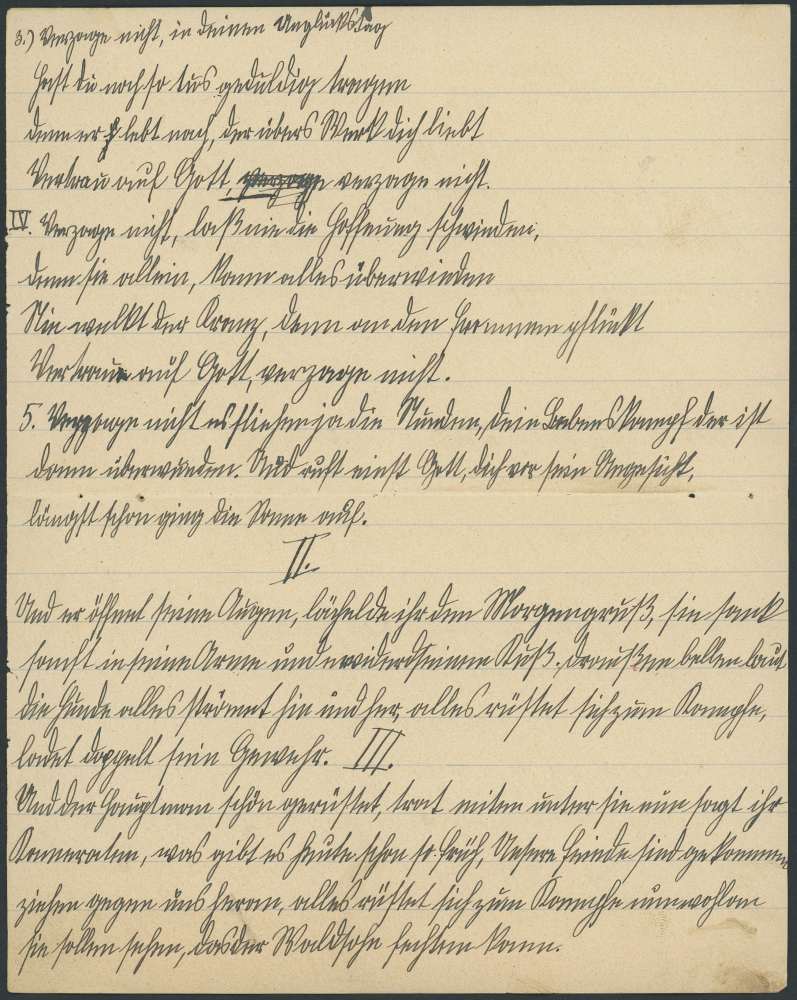 3.) Verzage nicht, in deinen Unglückstag
Hast du noch so tus geduldig tragen
denn er lebt noch, der übers Werk dich liebt
Vertrau auf Gott, verzage verzage nicht.
IV. Verzage nicht, laß nie die Hoffnung schwinden,
denn sie allein, kann alles überwinden
Nie welkt der Kranz, denn an den Frommen pflückt
Vertraue auf Gott, verzage nicht.
5. Verzage nicht es fliehen ja die Stunden, dein Lebenskampf der ist
dann überwunden. Und ruft einst Gott, dich vor sein Angesicht,
längst schon ging die Sonne auf.
II.
Und er öffnet seine Augen, lächelde ihr den Morgengruß, sie sank
sanft in seine Arme und erwiderd seinen Kuß. draußen bellen laut
die Hunde alles strömet hin und her, alles rüstet sich zum Kampfe,
ladet doppelt sein Gewehr. III.
Und der Hauptman schön gerüstet, trat miten unter sie nun sagt ihr
Kameraten, was gibt es heute schon so früh, Unsere Feinde sind gekommen
ziehen gegen uns heran, alles rüstet sich zum Kampfe nun wohlan
sie sollen sehen, das der Waldsohn fechten kann.